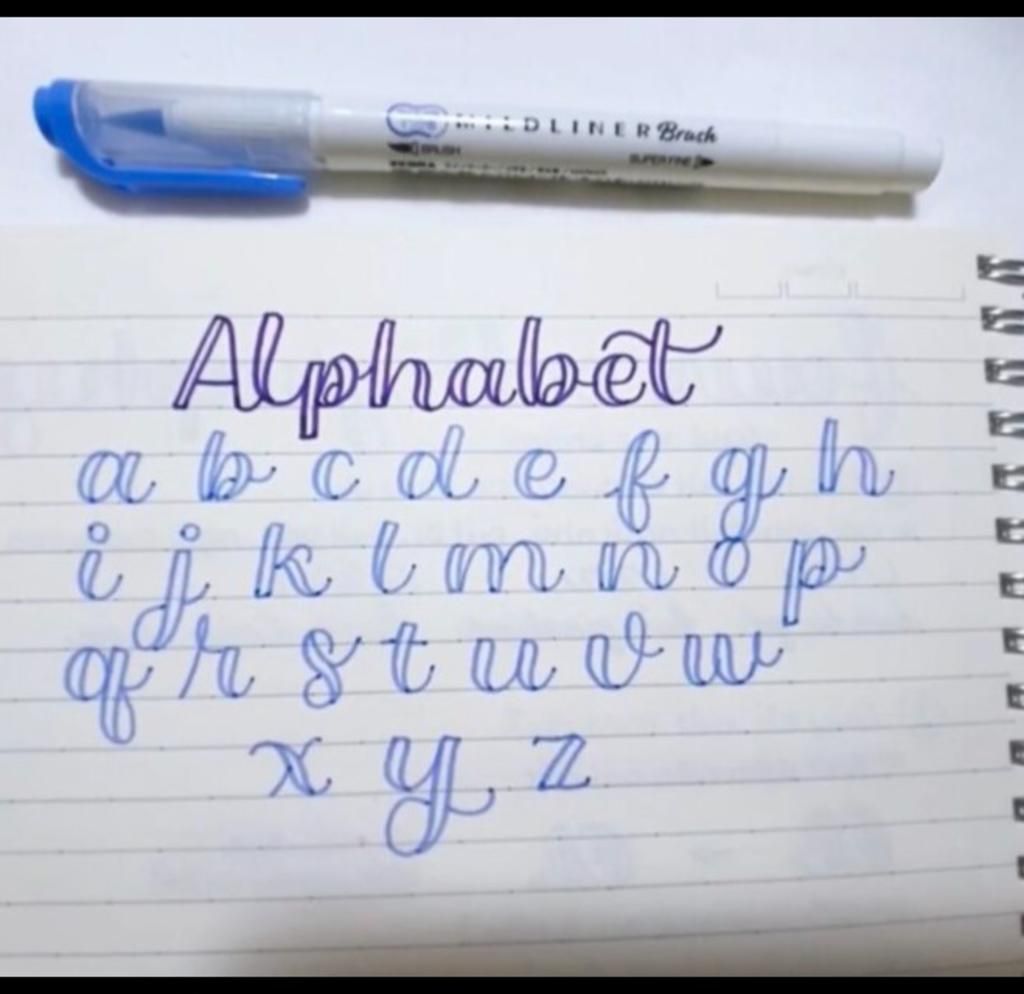 MILDLINER Brush
BRUSH SUPER FINE
ZEBRA
Alphabet
a b c d e f g h
i j k l m n o p
q r s t u v w
x y z